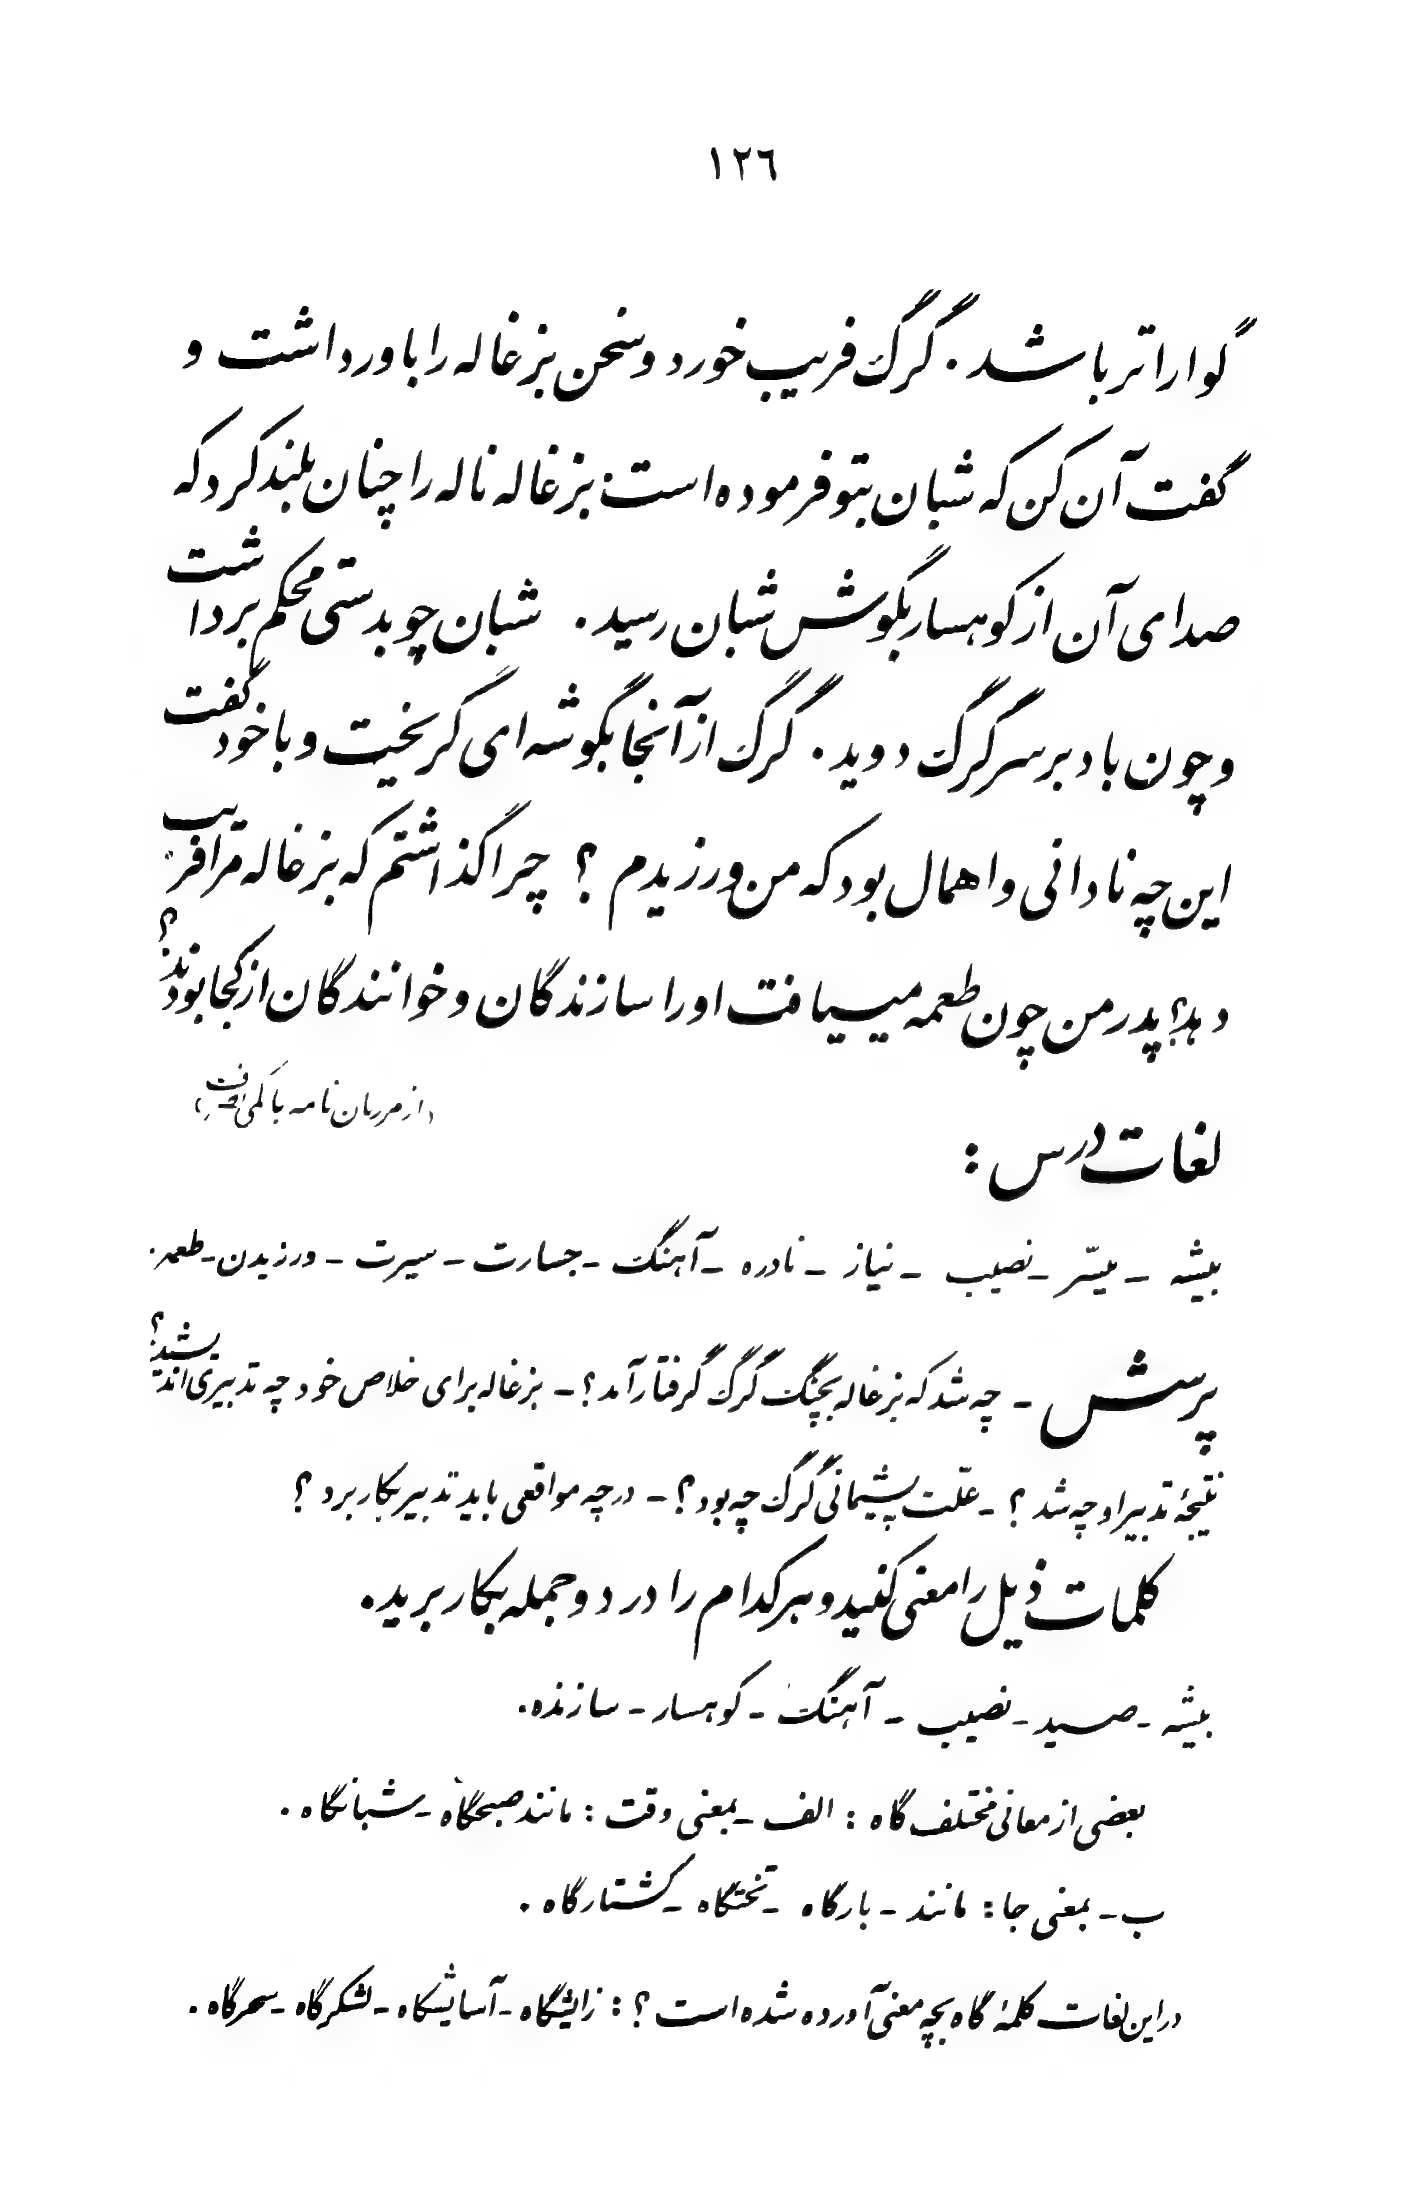 ١٢٦
گواراتر باشد. گرگ فریب خورد و سخن بزغاله را باور داشت و
گفت آن کن که شبان بتو فرموده است؛ بزغاله ناله را چنان بلند کرد که
صدای آن از کوهسار بگوش شبان رسید. شبان چوبدستی محکم برداشت
و چون باد بر سر گرگ دوید. گرگ از آنجا بگوشه‌ای گریخت و با خود گفت
این چه نادانی و اهمال بود که من ورزیدم؟ چرا گذاشتم که بزغاله مرا فریب
دهد؟ پدر من چون طعمه مییافت او را سازندگان و خوانندگان از کجا بودند؟
(از مرزبان نامه با کمی تصرف)
لغات درس:
بیشه - میسّر - نصیب - نیاز - نادره - آهنگ - جسارت - سیرت - ورزیدن - طعمه.
پرسش - چه شد که بزغاله بچنگ گرگ گرفتار آمد؟ - بزغاله برای خلاص خود چه تدبیری اندیشید؟
نتیجهٔ تدبیر او چه شد؟ - علّت پشیمانی گرگ چه بود؟ - در چه مواقعی باید تدبیر بکار برد؟
کلمات ذیل را معنی کنید و هر کدام را در دو جمله بکار برید.
بیشه - صید - نصیب - آهنگ - کوهسار - سازنده.
بعضی از معانی مختلف گاه: الف - بمعنی وقت: مانند صبحگاه - شبانگاه.
ب - بمعنی جا: مانند - بارگاه - تختگاه - کشتارگاه.
در این لغات کلمهٔ گاه بچه معنی آورده شده است؟: زایشگاه - آسایشگاه - لشکرگاه - سحرگاه.